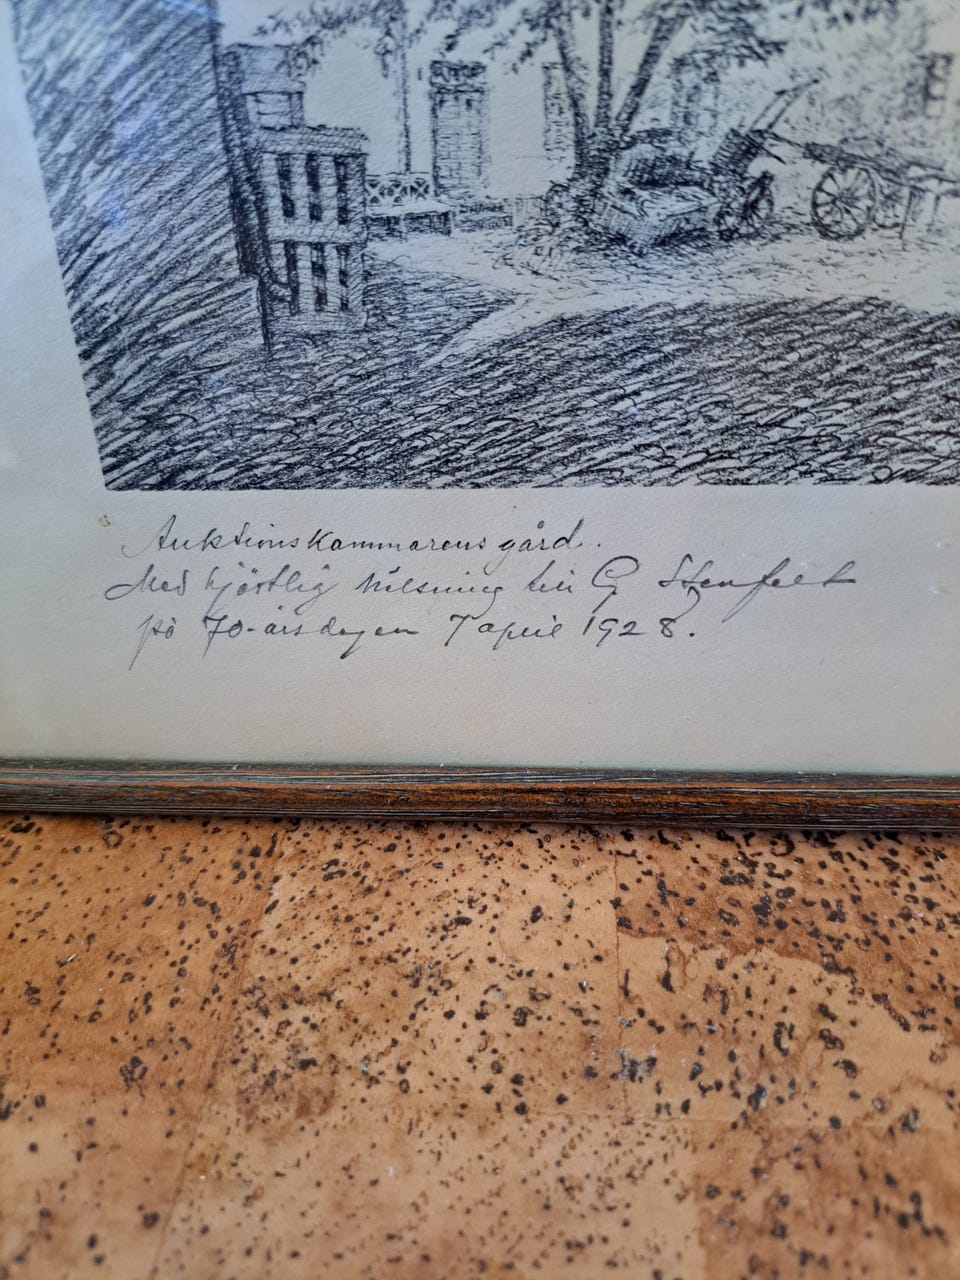 Auktionskammarens gård.
Med hjärtlig hälsning till G Stenfelt
på 70-årsdagen 7 april 1928.